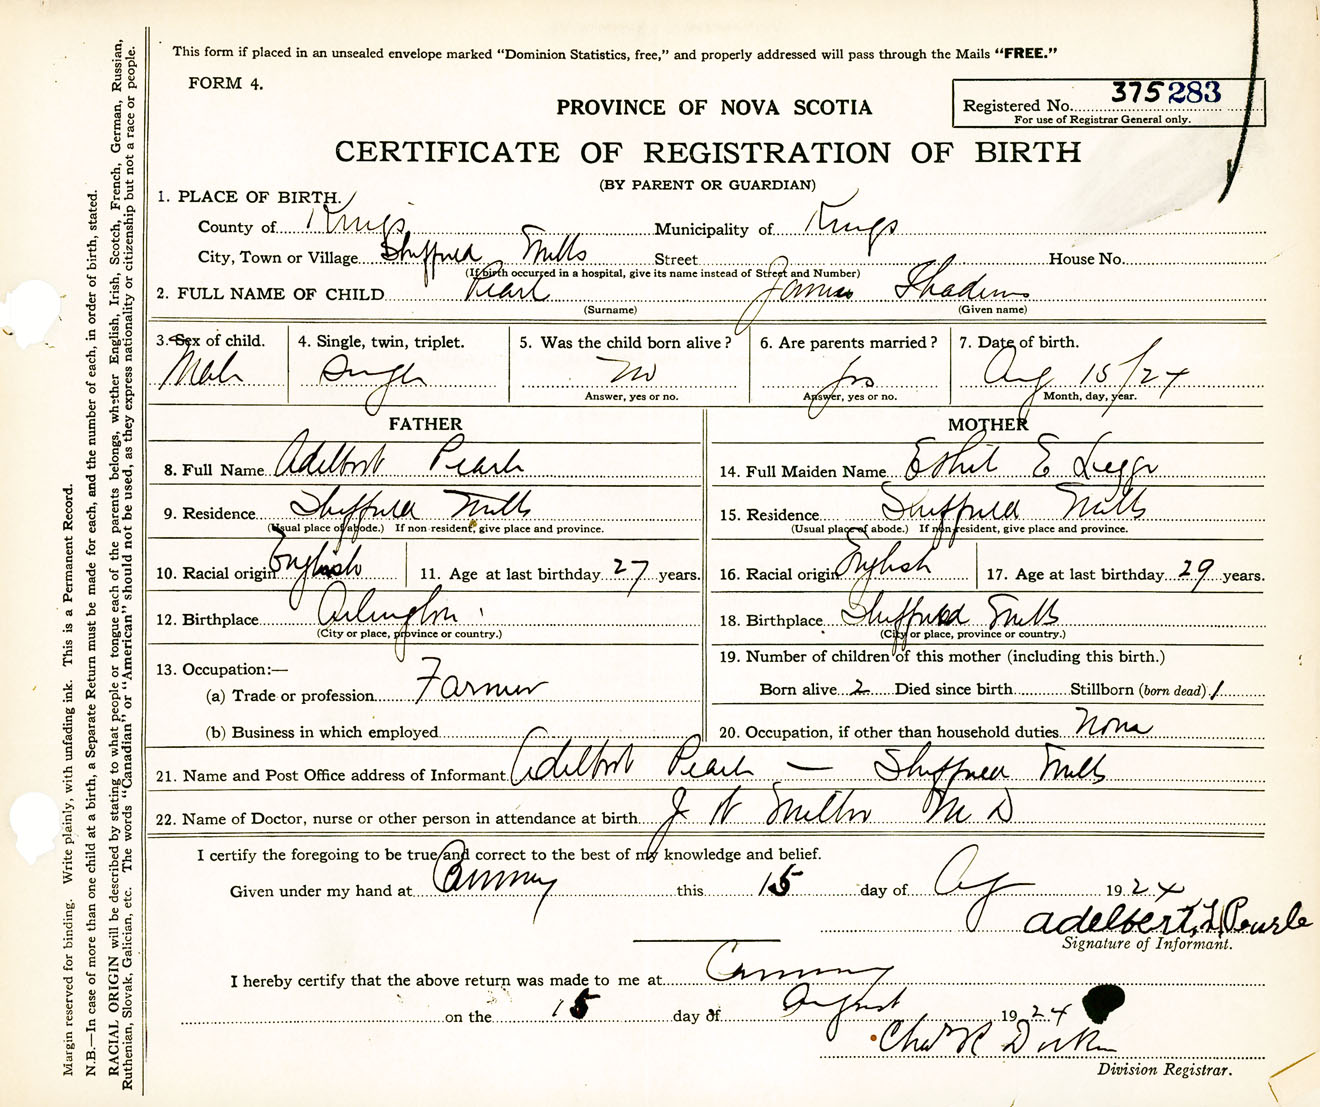 This form if placed in an unsealed envelope marked “Dominion Statistics, free,” and properly addressed will pass through the Mails “FREE.”
FORM 4.
Registered No. 375283
For use of Registrar General only.
PROVINCE OF NOVA SCOTIA
CERTIFICATE OF REGISTRATION OF BIRTH
(BY PARENT OR GUARDIAN)
1. PLACE OF BIRTH.
County of Kings Municipality of Kings
City, Town or Village Sheffield Mills Street House No.
(If birth occurred in a hospital, give its name instead of Street and Number)
2. FULL NAME OF CHILD Pearl James
(Surname) (Given name)
3. Sex of child. 4. Single, twin, triplet. 5. Was the child born alive? 6. Are parents married? 7. Date of birth.
Male Single No yes Aug 15/24
Answer, yes or no. Answer, yes or no. Month, day, year.
FATHER MOTHER
8. Full Name Adelbert Pearl 14. Full Maiden Name Ethel E Legge
9. Residence Sheffield Mills 15. Residence Sheffield Mills
(Usual place of abode.) If non-resident, give place and province. (Usual place of abode.) If non-resident, give place and province.
10. Racial origin English 11. Age at last birthday 27 years. 16. Racial origin English 17. Age at last birthday 29 years.
12. Birthplace Arlington 18. Birthplace Sheffield Mills
(City or place, province or country.) (City or place, province or country.)
13. Occupation:— 19. Number of children of this mother (including this birth.)
(a) Trade or profession Farmer Born alive 2 Died since birth Stillborn (born dead) 1
(b) Business in which employed 20. Occupation, if other than household duties None
21. Name and Post Office address of Informant Adelbert Pearl — Sheffield Mills
22. Name of Doctor, nurse or other person in attendance at birth J W Miller M D
I certify the foregoing to be true and correct to the best of my knowledge and belief.
Given under my hand at Canning this 15 day of Aug 1924
Adelbert, L, Pearle
Signature of Informant.
I hereby certify that the above return was made to me at Canning
on the 15 day of August 1924
Chas R
Division Registrar.
Margin reserved for binding. Write plainly, with unfading ink. This is a Permanent Record.
N.B.—In case of more than one child at a birth, a Separate Return must be made for each, and the number of each, in order of birth, stated.
RACIAL ORIGIN will be described by stating to what people or tongue each of the parents belongs, whether English, Irish, Scotch, French, German, Russian,
Ruthenian, Slovak, Galician, etc. The words “Canadian” or “American” should not be used, as they express nationality or citizenship but not a race or people.